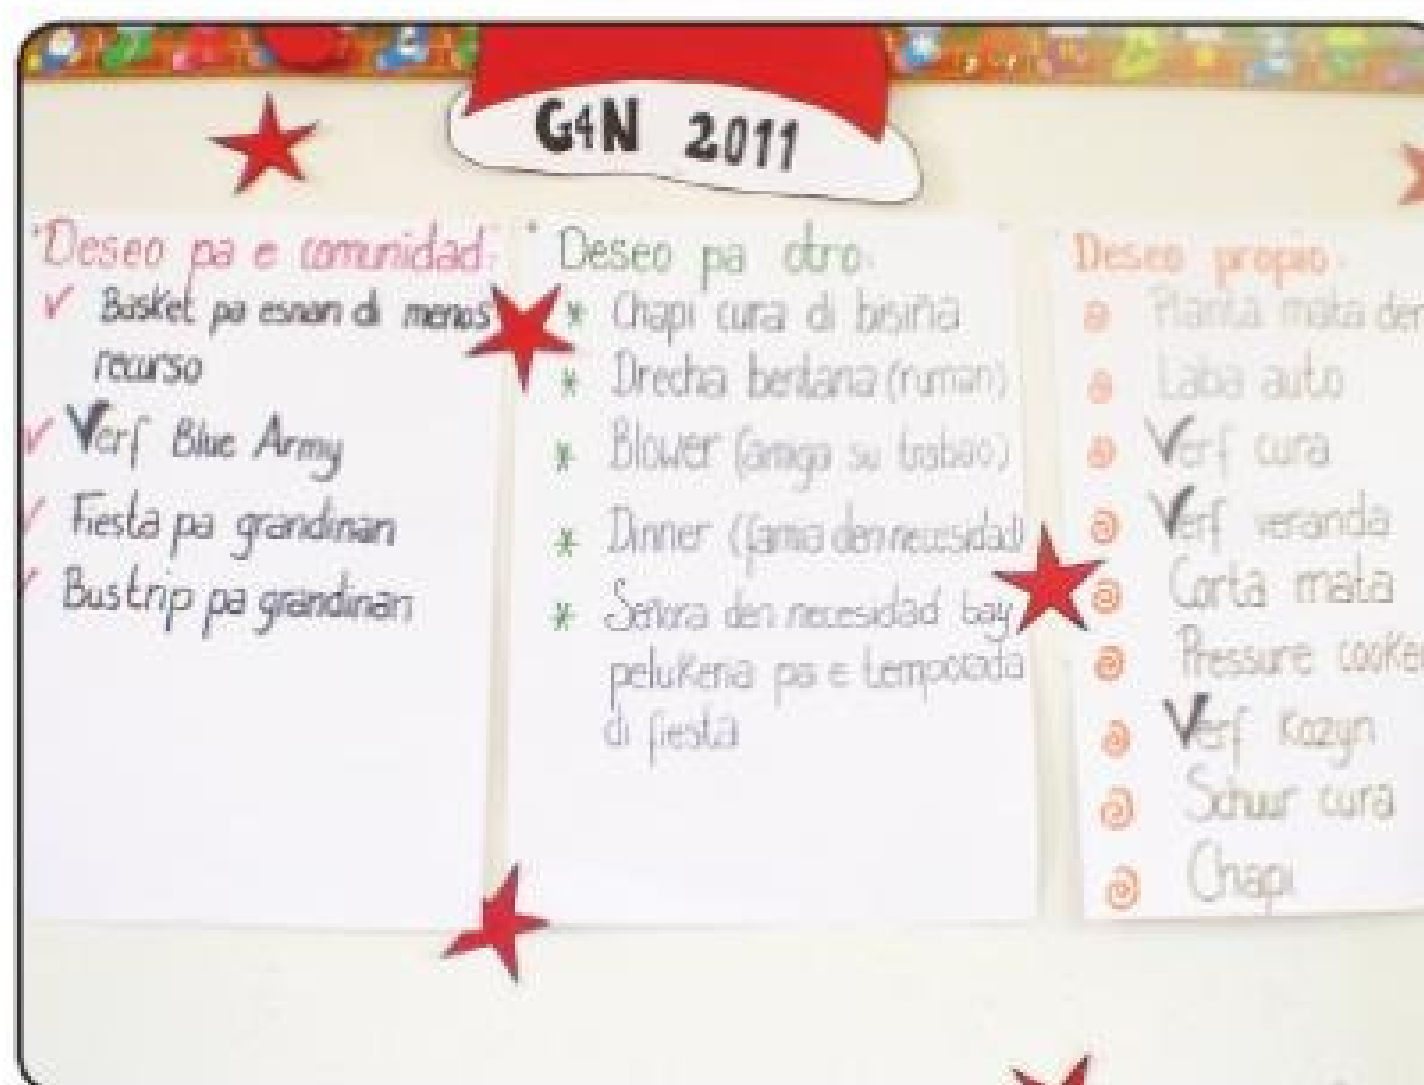 G4N 2011
"Deseo pa e comunidad:
Basket pa esnan di menos
recurso
Verf Blue Army
Fiesta pa grandinan
Bustrip pa grandinan
Deseo pa otro:
Chapi cura di bisiña
Drecha bentana (ruman)
Blower (amiga su trabao)
Dinner (famia den necesidad)
Señora den necesidad bay
pelukeria pa e temporada
di fiesta
Deseo propio:
Planta mata den
Laba auto
Verf cura
Verf veranda
Corta mata
Pressure cooker
Verf Kozyn
Schuur cura
Chapi